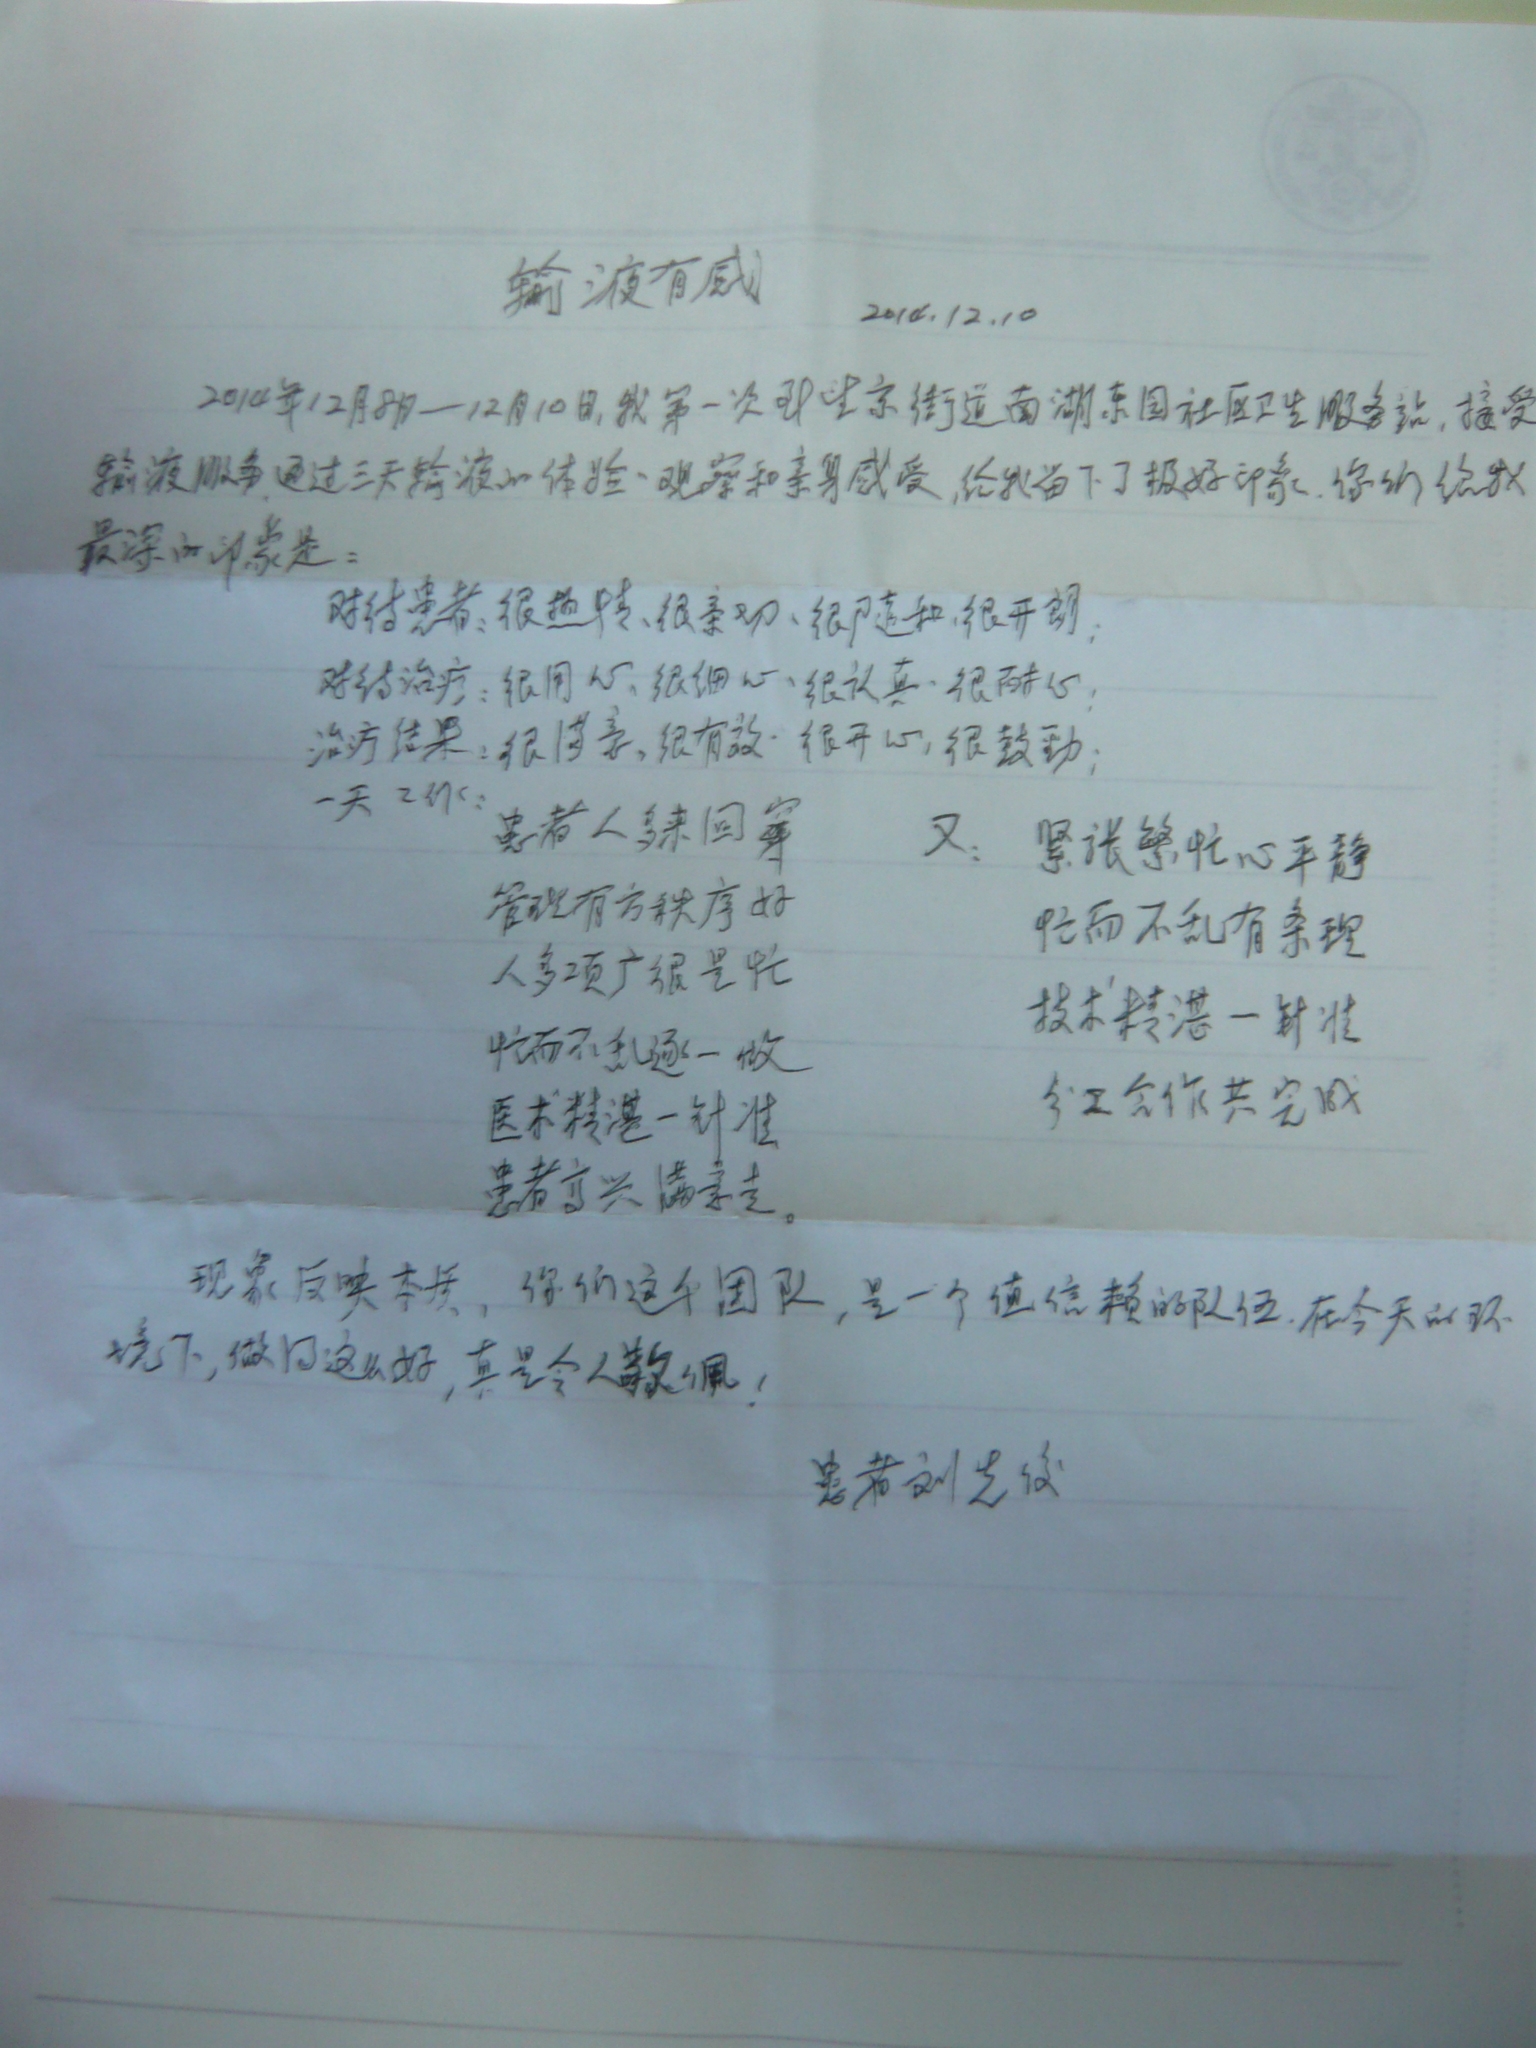 输液有感
2014.12.10
2014年12月8日—12月10日,我第一次到望京街道南湖东园社区卫生服务站,接受
输液服务,通过三天输液的体验、观察和亲身感受,给我留下了极好印象.你们给我
最深的印象是:
对待患者:很热情、很亲切、很随和、很开朗;
对待治疗:很用心、很细心、很认真、很耐心;
治疗结果:很满意、很有效、很开心、很鼓劲;
一天工作:
患者人多来回穿
管理有方秩序好
人多项广很是忙
忙而不乱逐一做
医术精湛一针准
患者高兴满意走。
又:紧张繁忙心平静
忙而不乱有条理
技术精湛一针准
分工合作共完成
现象反映本质,你们这个团队,是一个值信赖的队伍.在今天的环
境下,做得这么好,真是令人敬佩!
患者刘先